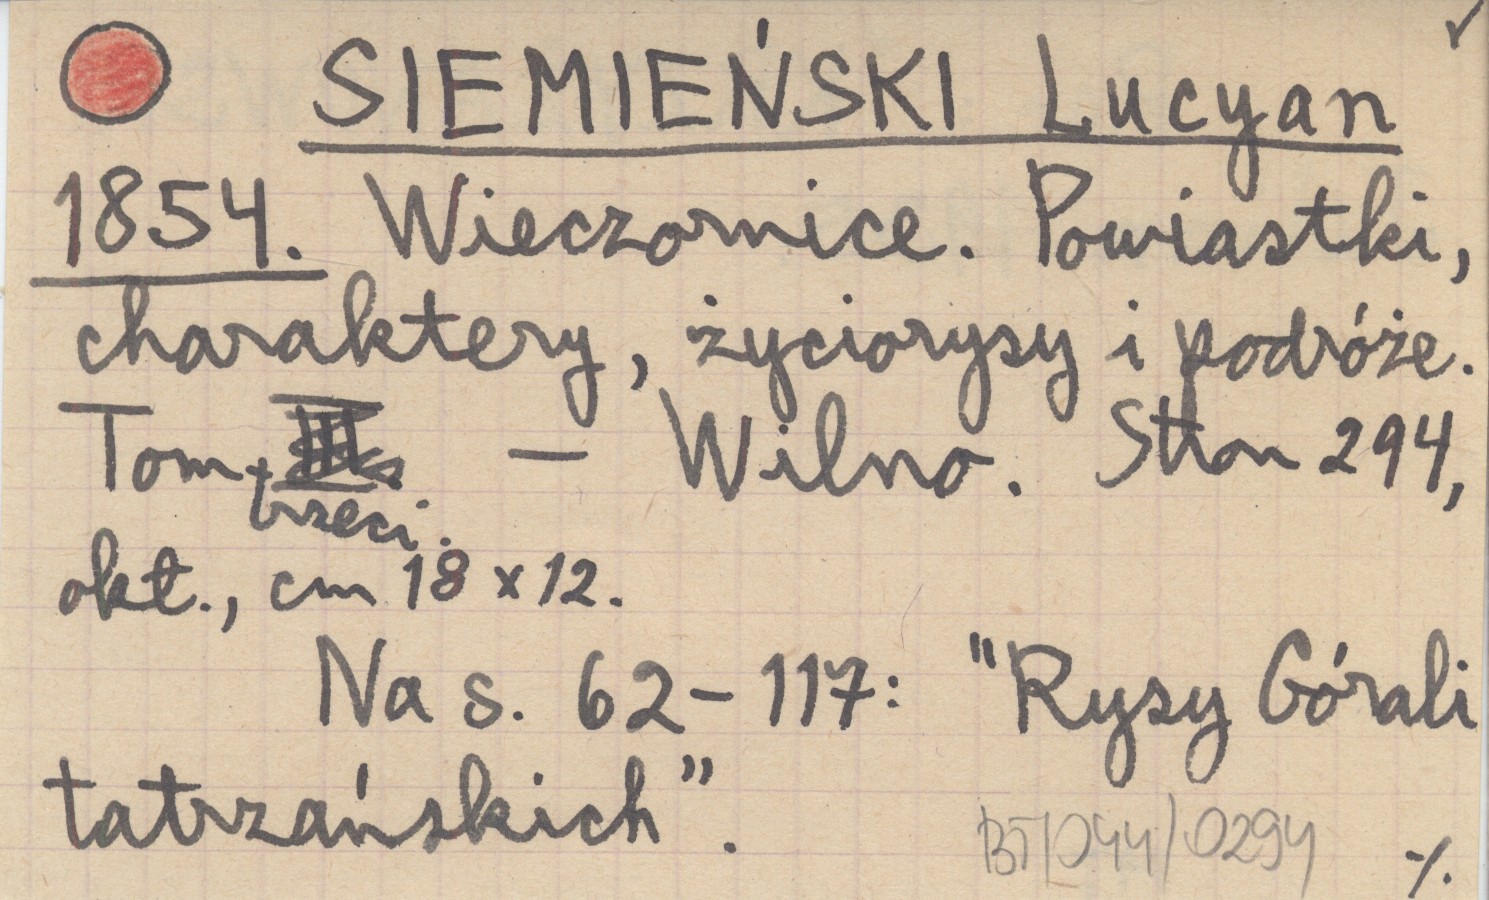 SIEMIEŃSKI Lucyan
1854. Wieczornice. Powiastki,
charaktery, życiorysy i podróże.
Tom trzeci. — Wilno. Stron 294,
okt., cm 18 x 12.
Na s. 62-117: "Rysy Górali
tatrzańskich".
BT/044/0294
•/.